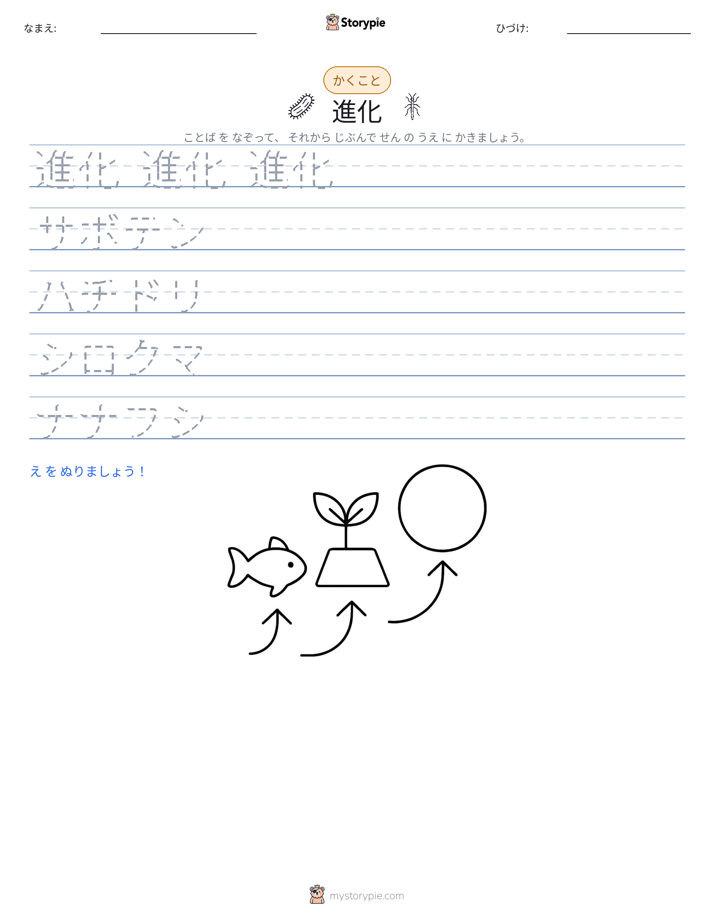 なまえ:
Storypie
ひづけ:
かくこと
進化
ことば を なぞって、 それから じぶんで せん の うえ に かきましょう。
進化 進化 進化
サボテン
ハチドリ
シロクマ
ナナフシ
え を ぬりましょう！
mystorypie.com